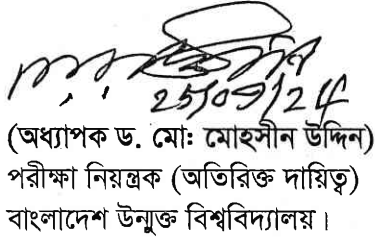 25/09/24
(অধ্যাপক ড. মোঃ মোহসীন উদ্দিন)
পরীক্ষা নিয়ন্ত্রক (অতিরিক্ত দায়িত্ব)
বাংলাদেশ উন্মুক্ত বিশ্ববিদ্যালয়।